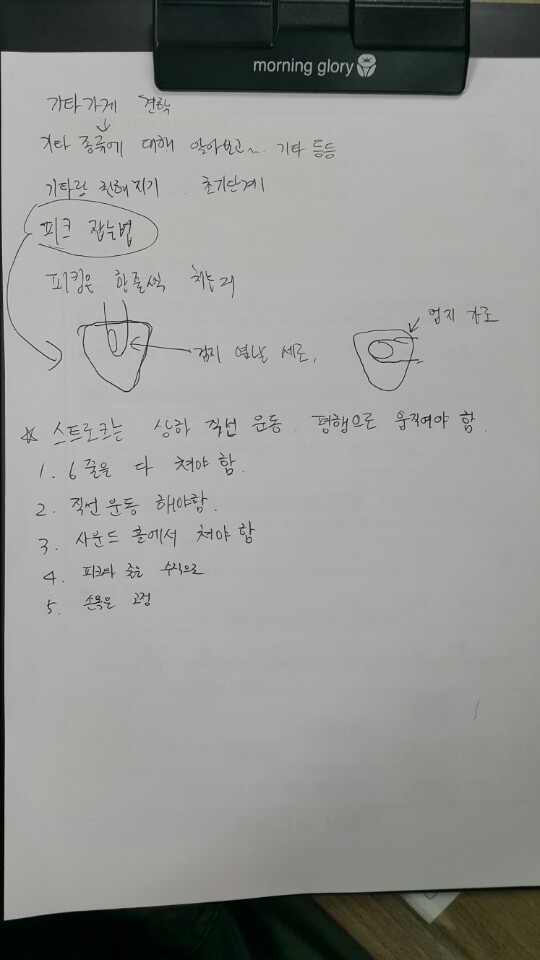 morning glory
기타가게 견학
기타 종류에 대해 알아보고~.. 기타 등등
기타랑 친해지기 .. 초기단계1
피크 잡는법
피킹은 한줄씩 치는거
엄지 가로
검지 옆날 세로.
☆ 스트로크는 상하 직선 운동. 평행으로 움직여야 함.
1. 6줄을 다 쳐야 함.
2. 직선 운동 해야함.
3. 사운드 홀에서 쳐야 함
4. 피크와 줄은 수직으로
5. 손목은 고정